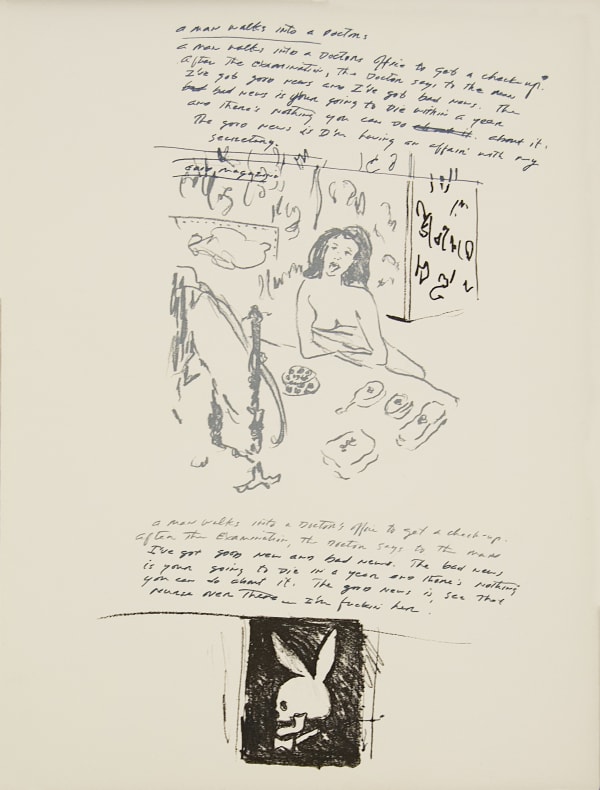 a man walks into a Doctors
a man walks into a Doctors Office to get a check-up.
After the examination, the Doctor says to the man
I've got good news and I've got bad news. The
bad bad news is your going to Die within a year
and there's nothing you can do about it. about it.
The good news is I'm having an affair with my
secretary.
a man walks into a Doctor's office to get a check-up.
after the Examination, the Doctor says to the man
I've got good new and bad news. The bad news
is your going to Die in a year and there's nothing
you can do about it. The good news is, see that
nurse over there — I'm fuckin her.